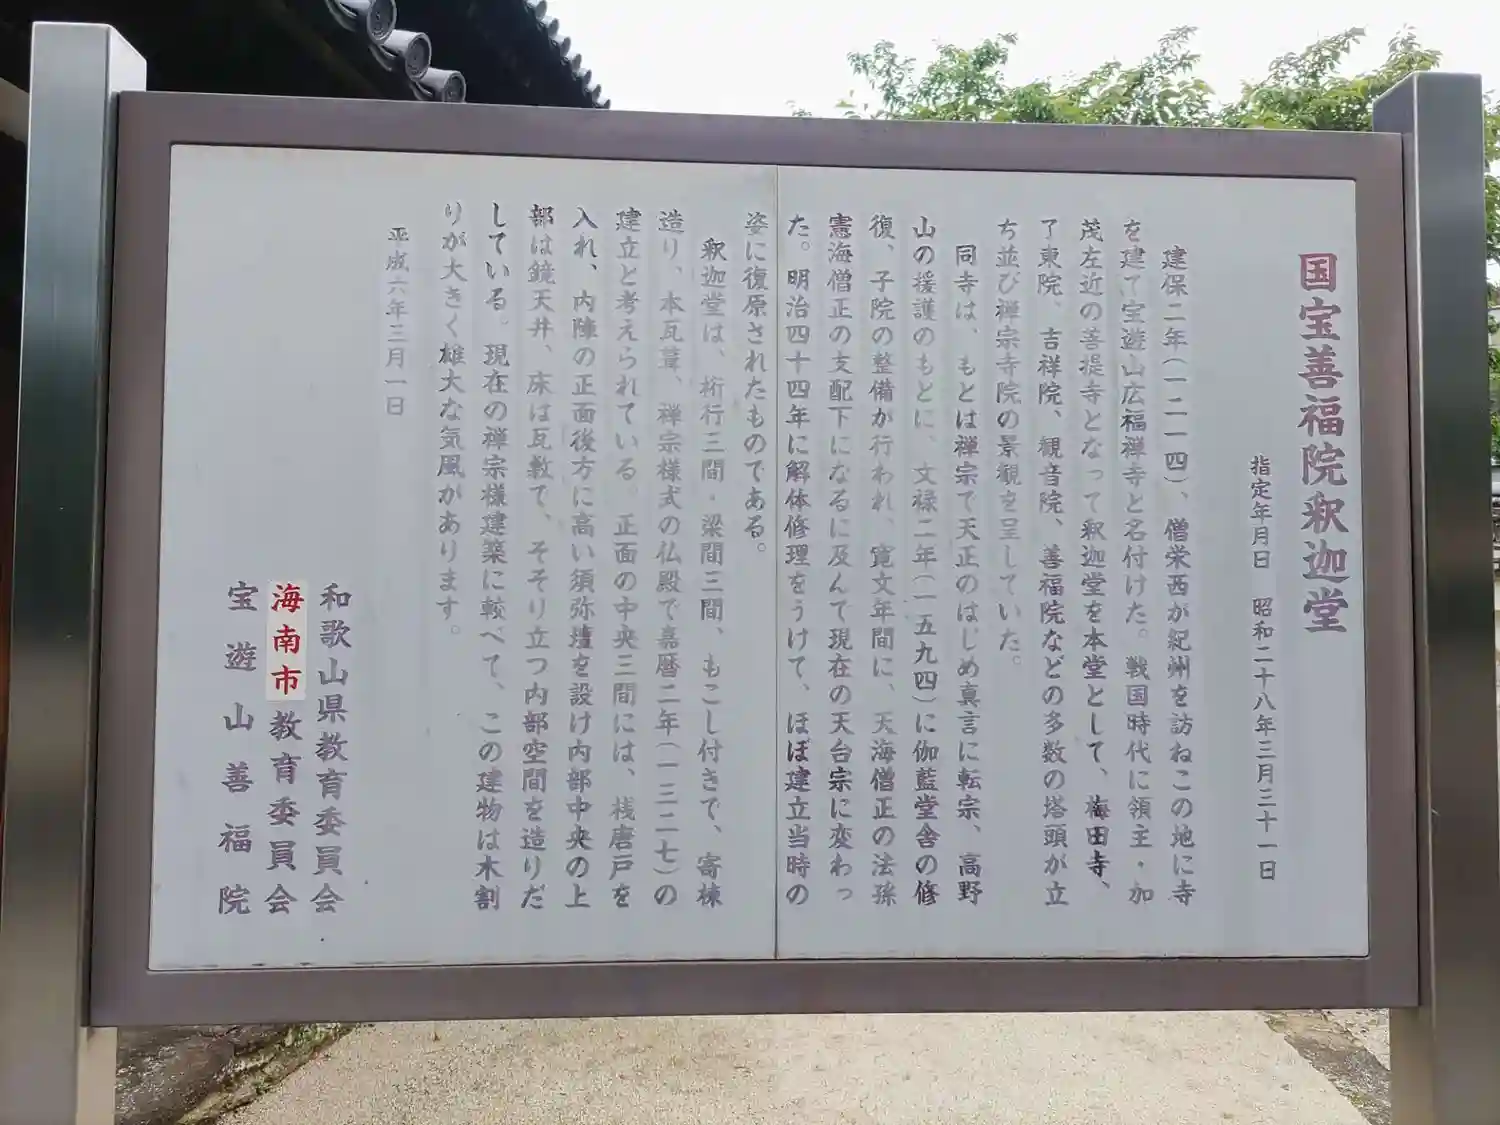 国宝善福院釈迦堂
指定年月日　昭和二十八年三月三十一日
建保二年(一二一四)、僧栄西が紀州を訪ねこの地に寺
を建て宝遊山広福禅寺と名付けた。戦国時代に領主・加
茂左近の菩提寺となって釈迦堂を本堂として、梅田寺、
了東院、吉祥院、観音院、善福院などの多数の塔頭が立
ち並び禅宗寺院の景観を呈していた。
同寺は、もとは禅宗で天正のはじめ真言に転宗、高野
山の援護のもとに、文禄二年(一五九四)に伽藍堂舎の修
復、子院の整備が行われ、寛文年間に、天海僧正の法孫
憲海僧正の支配下になるに及んで現在の天台宗に変わっ
た。明治四十四年に解体修理をうけて、ほぼ建立当時の
姿に復原されたものである。
釈迦堂は、桁行三間・梁間三間、もこし付きで、寄棟
造り、本瓦葺、禅宗様式の仏殿で嘉暦二年(一三二七)の
建立と考えられている。正面の中央三間には、桟唐戸を
入れ、内陣の正面後方に高い須弥壇を設け内部中央の上
部は鏡天井、床は瓦敷で、そそり立つ内部空間を造りだ
している。現在の禅宗様建築に較べて、この建物は木割
りが大きく雄大な気風があります。
平成六年三月一日
和歌山県教育委員会
海南市教育委員会
宝遊山善福院